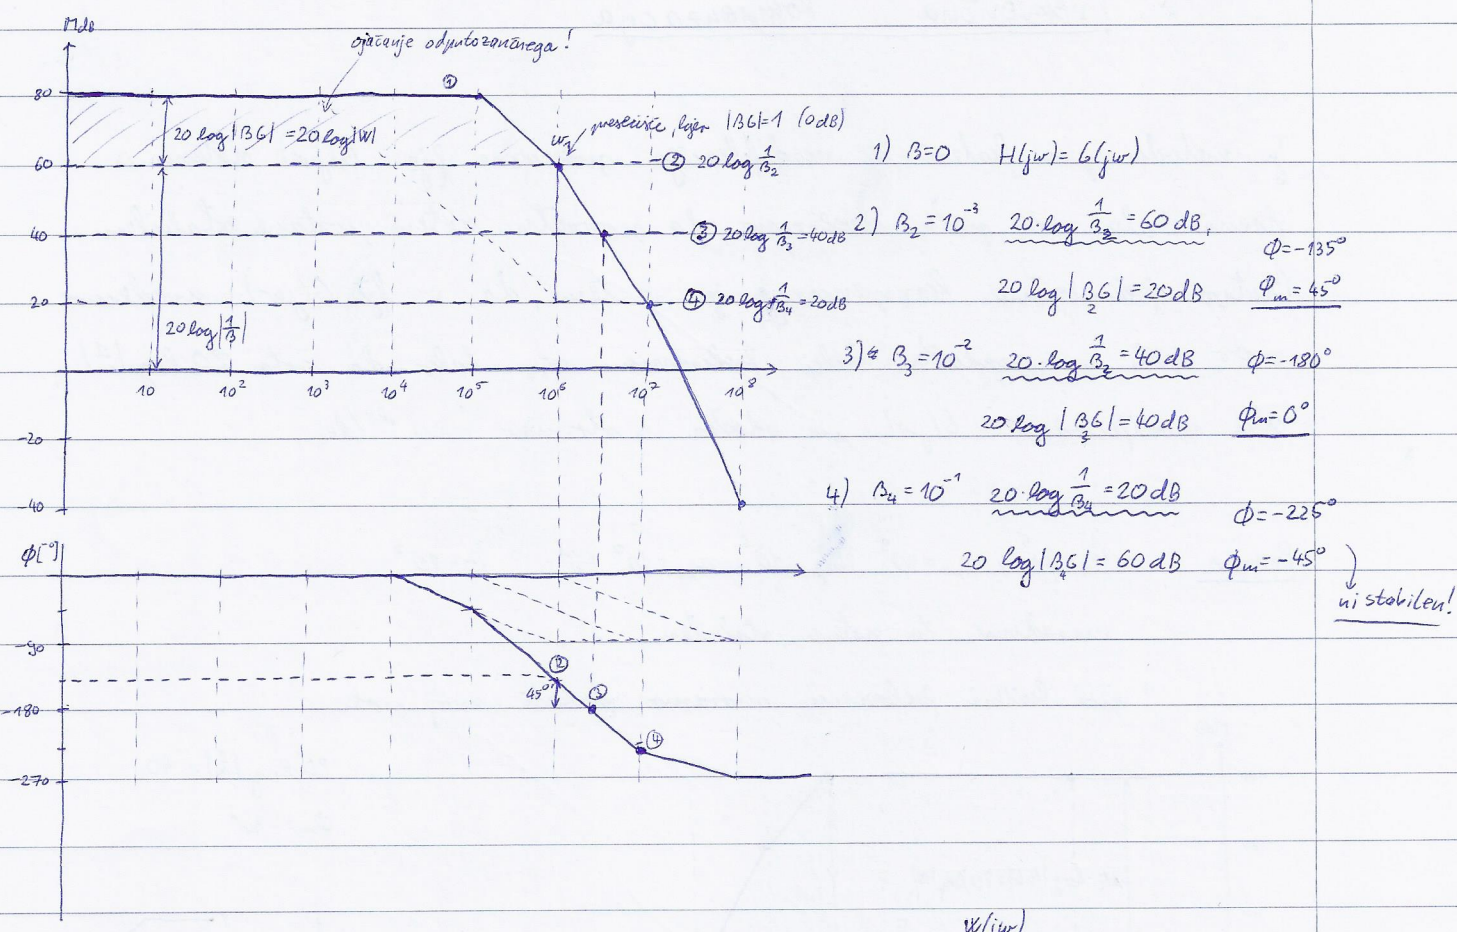 M dB
ojačanje odprtozančnega!
80
①
20 log|BG| = 20 log|W|
ω₁
presečišče, kjer |BG|=1 (0dB)
60
② 20 log 1/B₂
40
③ 20 log 1/B₃ = 40 dB
20
④ 20 log 1/B₄ = 20 dB
20 log|1/B|
10 10² 10³ 10⁴ 10⁵ 10⁶ 10⁷ 10⁸
-20
-40
1) B=0 H(jω) = G(jω)
2) B₂ = 10⁻³ 20·log 1/B₂ = 60 dB,
ϕ=-135°
20 log|B₂G| = 20 dB ϕm = 45°
3) B₃ = 10⁻² 20·log 1/B₂ = 40 dB ϕ=-180°
20 log|B₃G| = 40 dB ϕm = 0°
4) B₄ = 10⁻¹ 20·log 1/B₄ = 20 dB
ϕ=-225°
20 log|B₄G| = 60 dB ϕm = -45°
ni stabilen!
ϕ[°]
-90
②
45°
③
-180
④
-270
W(jω)